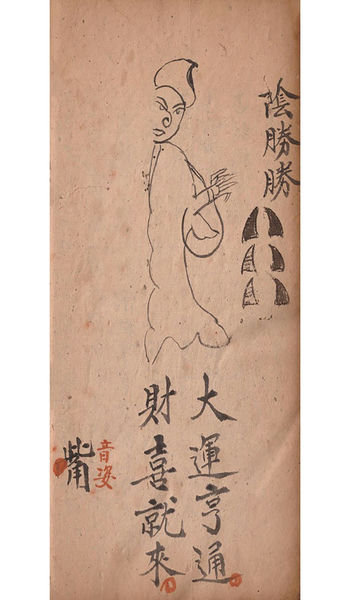 陰勝勝
大運亨通
財喜就來
音姿
觜